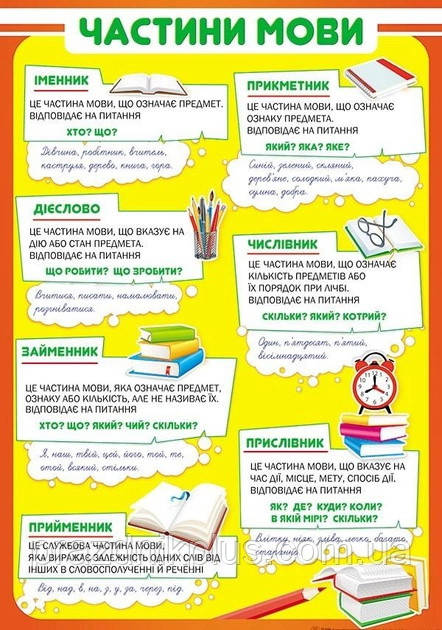 ЧАСТИНИ МОВИ
ІМЕННИК
ЦЕ ЧАСТИНА МОВИ, ЩО ОЗНАЧАЄ ПРЕДМЕТ.
ВІДПОВІДАЄ НА ПИТАННЯ
ХТО? ЩО?
Дівчина, робітник, вчитель,
каструля, дерево, книга, гора.
ПРИКМЕТНИК
ЦЕ ЧАСТИНА МОВИ, ЩО ОЗНАЧАЄ
ОЗНАКУ ПРЕДМЕТА.
ВІДПОВІДАЄ НА ПИТАННЯ
ЯКИЙ? ЯКА? ЯКЕ?
Синій, зелений, скляний,
дерев'яне, солодкий, м'яка, пахуча,
сумна, добра.
ДІЄСЛОВО
ЦЕ ЧАСТИНА МОВИ, ЩО ВКАЗУЄ НА
ДІЮ АБО СТАН ПРЕДМЕТА.
ВІДПОВІДАЄ НА ПИТАННЯ
ЩО РОБИТИ? ЩО ЗРОБИТИ?
Вчитися, писати, намалювати,
розгніватися.
ЧИСЛІВНИК
ЦЕ ЧАСТИНА МОВИ, ЩО ОЗНАЧАЄ
КІЛЬКІСТЬ ПРЕДМЕТІВ АБО
ЇХ ПОРЯДОК ПРИ ЛІЧБІ.
ВІДПОВІДАЄ НА ПИТАННЯ
СКІЛЬКИ? ЯКИЙ? КОТРИЙ?
Один, п'ятдесят, п'ятий,
вісімнадцятий.
ЗАЙМЕННИК
ЦЕ ЧАСТИНА МОВИ, ЯКА ОЗНАЧАЄ ПРЕДМЕТ,
ОЗНАКУ АБО КІЛЬКІСТЬ, АЛЕ НЕ НАЗИВАЄ ЇХ.
ВІДПОВІДАЄ НА ПИТАННЯ
ХТО? ЩО? ЯКИЙ? ЧИЙ? СКІЛЬКИ?
Я, наш, твій, цей, його, той, те,
отой, всякий, стільки.
ПРИСЛІВНИК
ЦЕ ЧАСТИНА МОВИ, ЩО ВКАЗУЄ НА
ЧАС ДІЇ, МІСЦЕ, МЕТУ, СПОСІБ ДІЇ.
ВІДПОВІДАЄ НА ПИТАННЯ
ЯК? ДЕ? КУДИ? КОЛИ?
В ЯКІЙ МІРІ? СКІЛЬКИ?
Влітку, ніяк, зліва, легко, багато,
старанно.
ПРИЙМЕННИК
ЦЕ СЛУЖБОВА ЧАСТИНА МОВИ,
ЯКА ВИРАЖАЄ ЗАЛЕЖНІСТЬ ОДНИХ СЛІВ ВІД
ІНШИХ В СЛОВОСПОЛУЧЕННІ Й РЕЧЕННІ
Від, над, в, на, з, у, за, через, під.